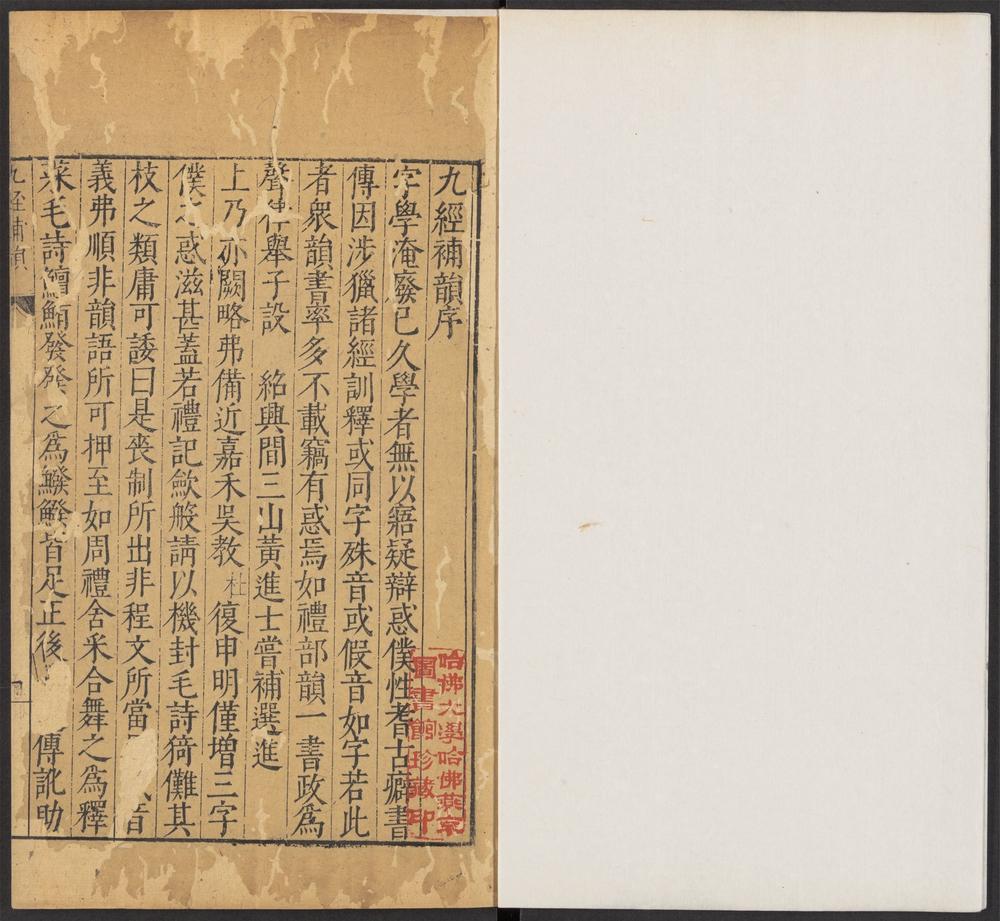 九經補韻序
字學淹廢已久學者無以寤疑辯惑僕性耆古癖書
傳因涉獵諸經訓釋或同字殊音或假音如字若此
者衆韻書率多不載竊有惑焉如禮部韻一書政爲
聲律舉子設 紹興間三山黃進士嘗補選進
上乃亦闕略弗備近嘉禾吳教杜復申明僅增三字
僕之惑滋甚蓋若禮記歛般請以機封毛詩猗儺其
枝之類庸可諉曰是喪制所出非程文所當 音
義弗順非韻語所可押至如周禮舍釆合舞之爲釋
菜毛詩鱣鮪發發之爲鱍鱍皆足正後 傳訛助
九經補韻
哈佛大學哈佛燕京
圖書館珍藏印